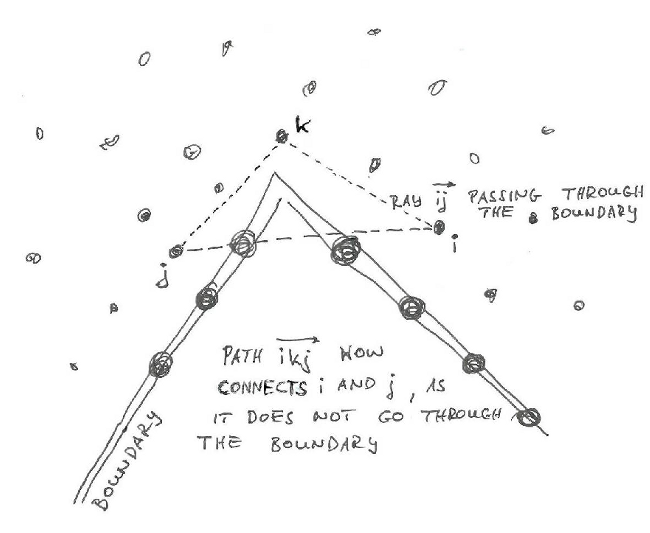 k
RAY ij PASSING THROUGH
THE BOUNDARY
i
j
PATH ikj NOW
CONNECTS i AND j, AS
IT DOES NOT GO THROUGH
THE BOUNDARY
BOUNDARY